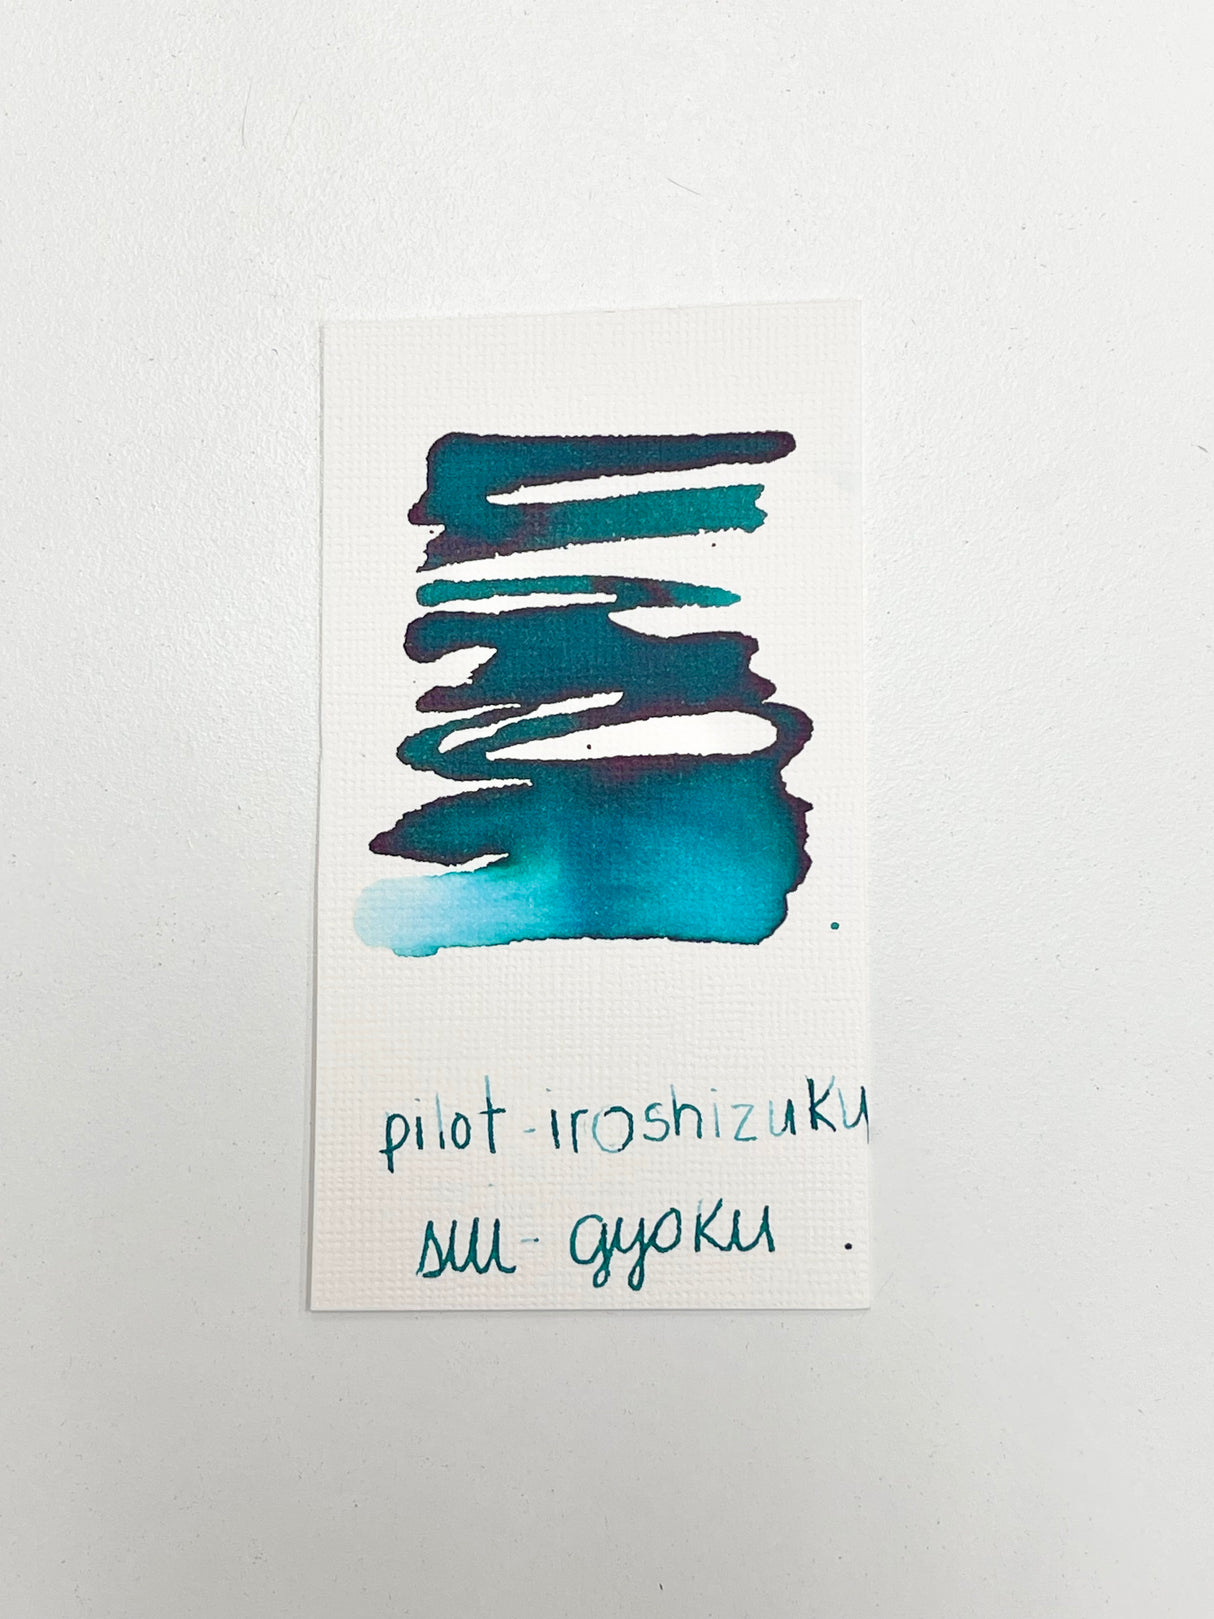 pilot-iroshizuku
sui-gyoku